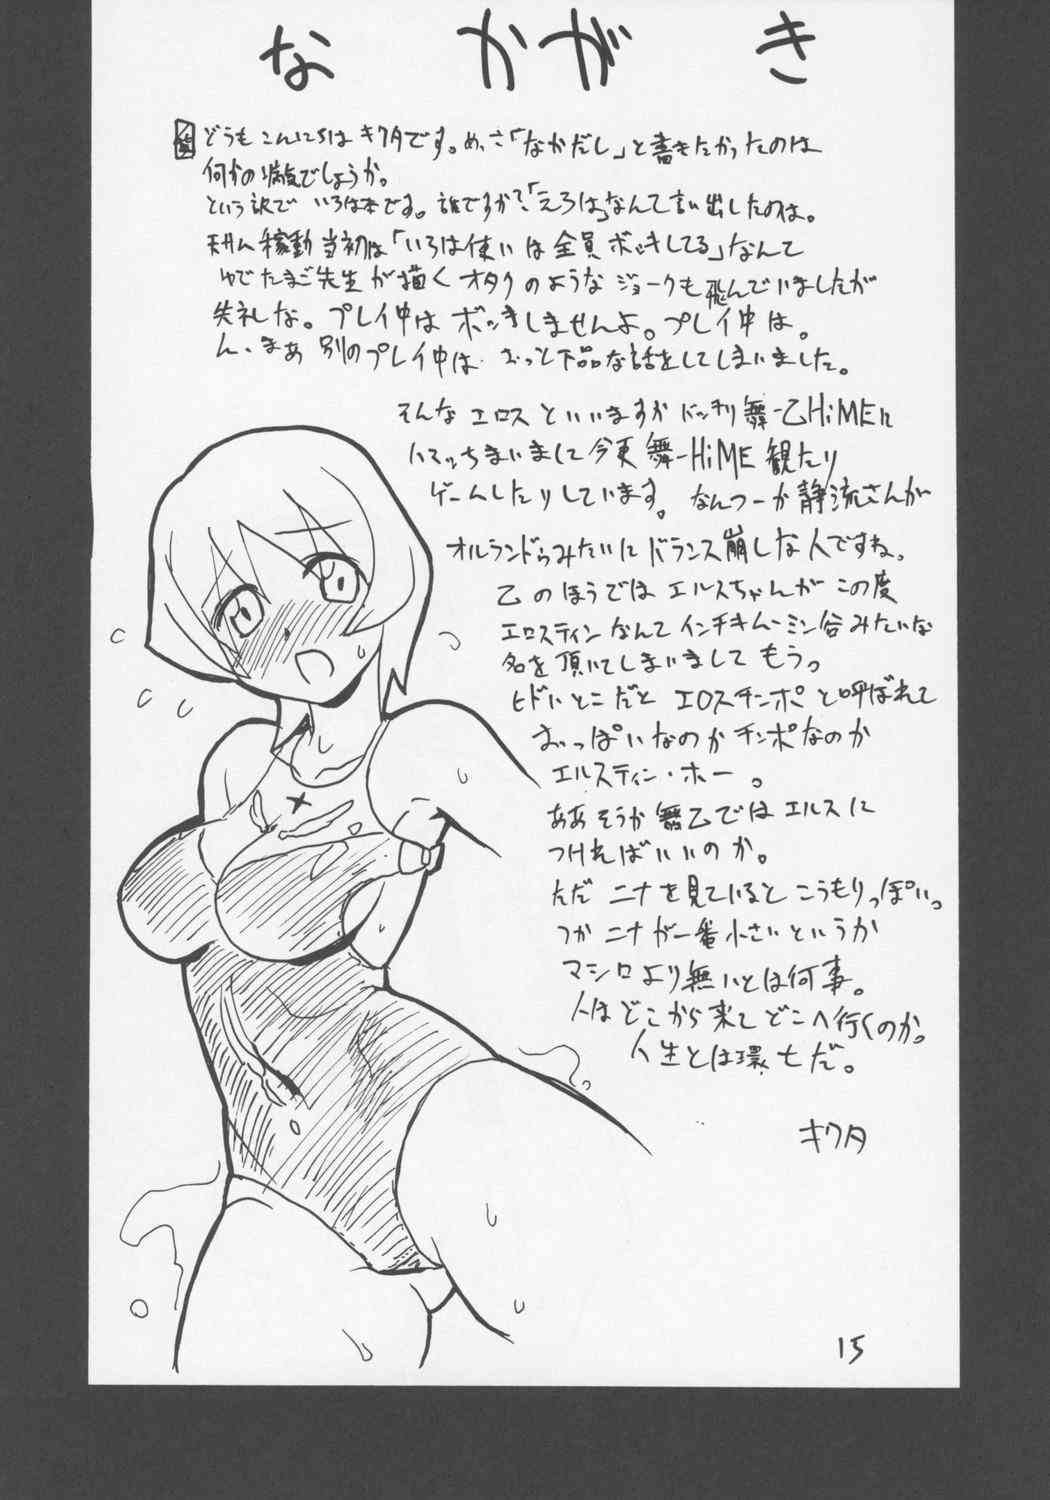 なかがき
どうもこんにちは キクタです。めっさ「なかだし」と書きたかったのは
何かの病気でしょうか。
という訳で いろは本です。誰ですか?「えろは」なんて言い出したのは。
稼動当初は「いろは使いは全員ボッキしてる」なんて
ゆでたまご先生が描くオタクのようなジョークも飛んでいましたが
失礼な。プレイ中はボッキしませんよ。プレイ中は。
ん、まあ 別のプレイ中は おっと下品な話をしてしまいました。
そんなエロスといいますか バッチリ舞-乙HiMEに
ハマっちまいまして今更 舞-HiME 観たり
ゲームしたりしています。なんつーか静流さんが
オルランドゥみたいにバランス崩しな人ですね。
乙のほうでは エルスちゃんが この度
エロスティンなんて インチキムーミン谷みたいな
名を頂いてしまいまして もうっ
ヒドいとこだと エロスチンポ と呼ばれて
おっぱいなのかチンポなのか
エルスティン・ホー。
ああ そうか 舞乙では エルスに
つければいいのか。
ただ ニナを見ていると こうもりっぽいっ
つか ニナが一番小さいというか
マシロより無いとは何事。
人はどこから来てどこへ行くのか。
人生とは環七だ。
キクタ
15